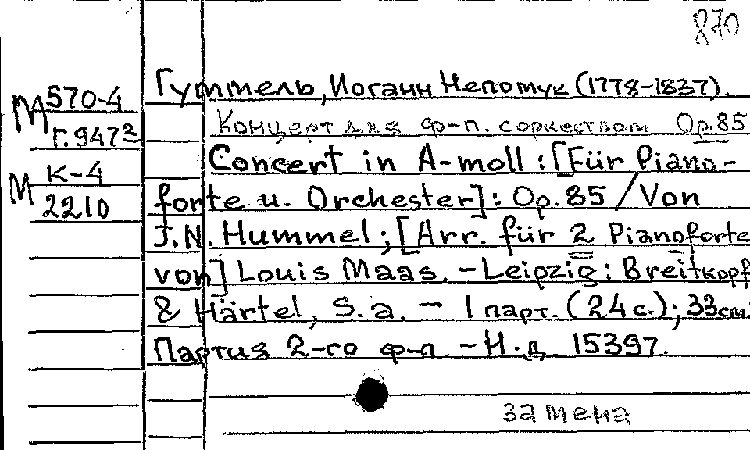 870
М 570-4
Г.947²
М К-4
2210
Гуммель, Иоганн Непомук (1778-1837).
Концерт для ф-п. с оркестром Op.85
Concert in A-moll : [Für Piano-
forte u. Orchester] : Op. 85 / Von
J.N. Hummel; [Arr. für 2 Pianoforte
von] Louis Maas. – Leipzig : Breitkopf
& Härtel, S. a. – 1 парт. (24 с.); 33см.
Партия 2-го ф-п – Н.д. 15397.
замена